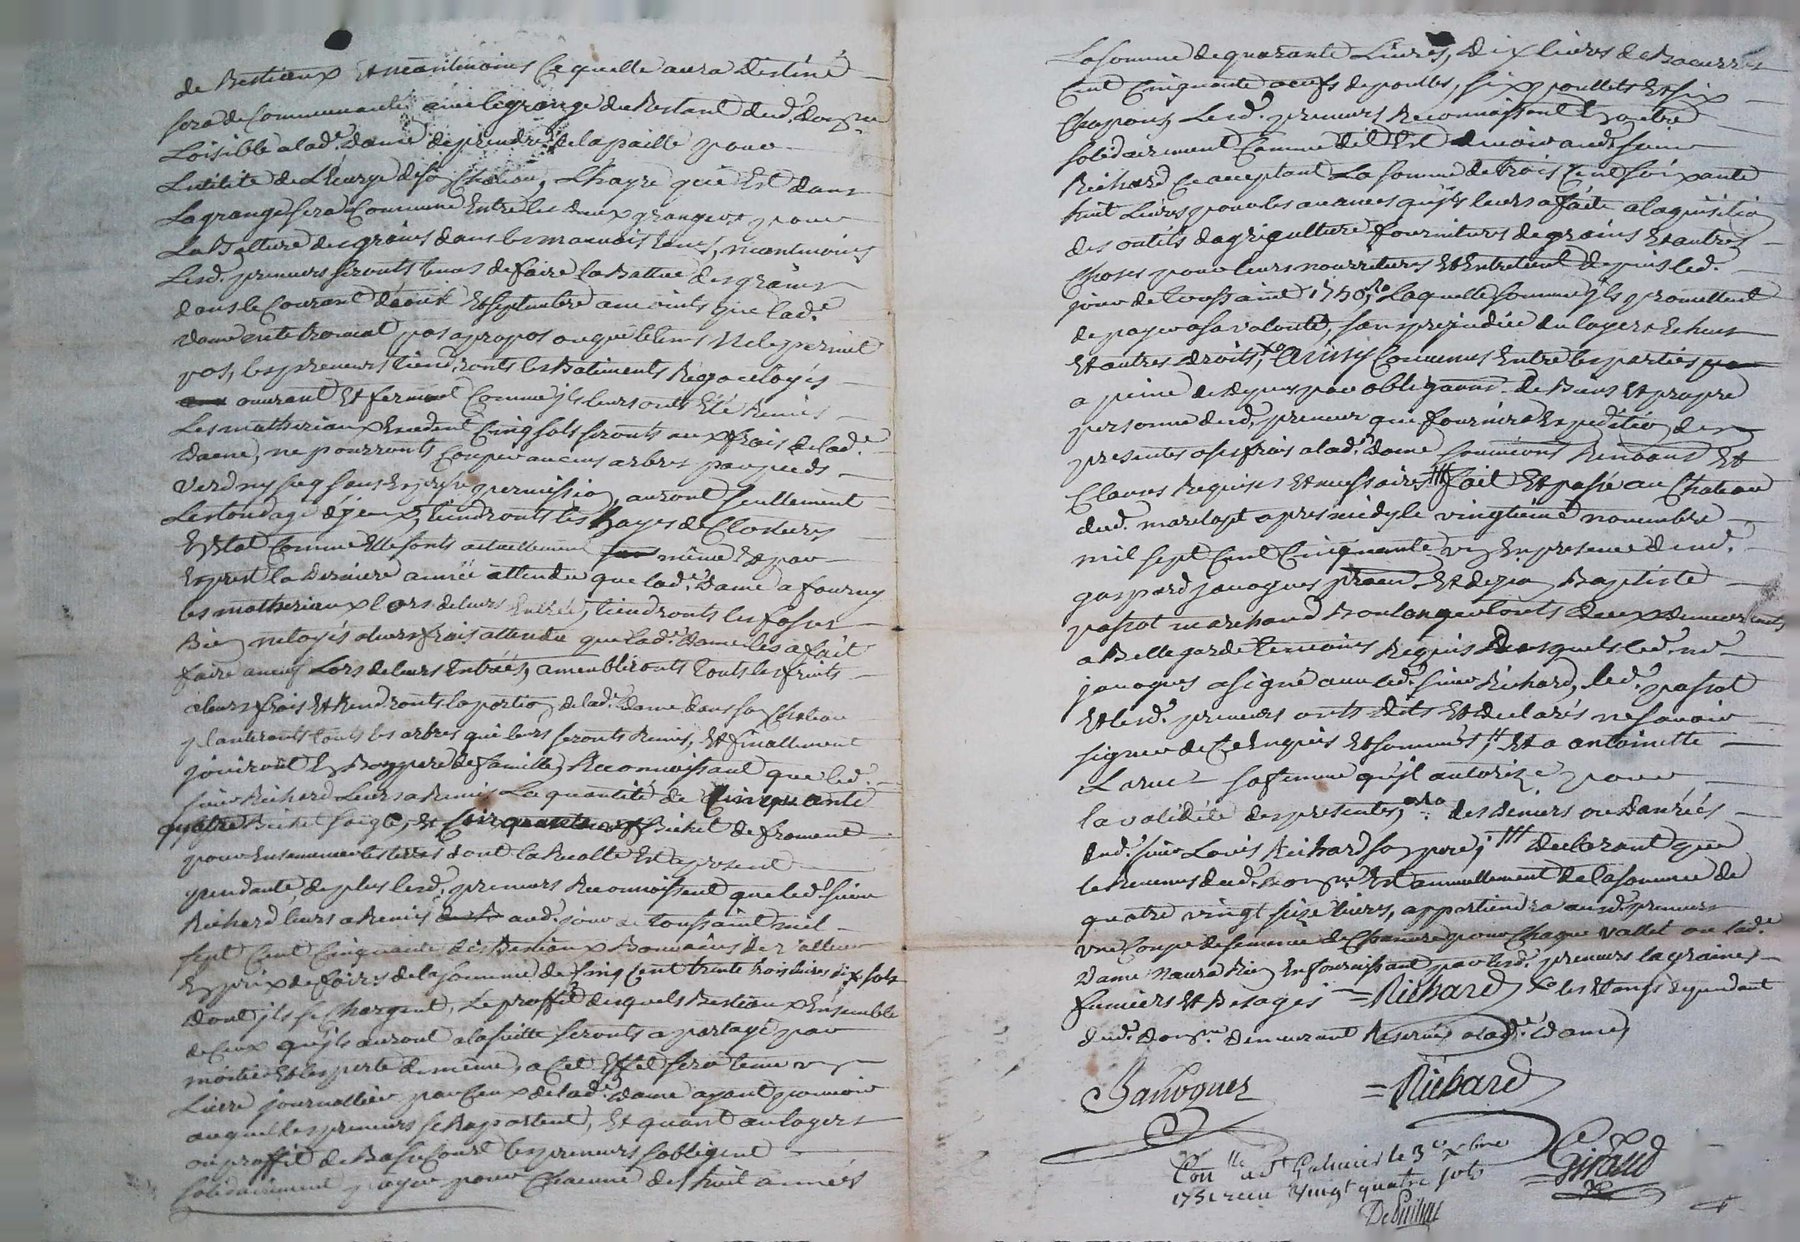 de Bestiaux Et néantmoins Ce quelle aura Destiné
sera de Communauté avec le grange du Restant dud. domne
Loisible a lad.e Dame de prendre de la paille pour
Lutilité de L'écurye de son Chateau, Lhayre qui Est dans
La grange sera Commune Entre les deux grangers pour
La Batture des grains dans les mauvais tems, néantmoins
Lesd. preneurs seronts tenus de faire la Battue des grains
dans le Courant d'aoust Et septembre a moints que lad.e
dame ne le trouvat pas a propos ou que le tems Ne le permit
pas, les preneurs tiendronts les Batiments
ouvrant Et fermant Comme ils leurs onts Eté Remis
Les matheriaux Excedent Cinq sols seronts aux frais de lad.e
Dame, ne pourronts Couper aucuns arbres par pieds
Verd ny secq sans Expresse permission, auront seullement
Les tondage d'jeux, tiendronts les hayes de Clotures
En Etat Comme Elle sonts actuellement même Et par
Exprest la Derniere année attendu que lad.e Dame a fourny
les matheriaux lors de leurs Entrée, tiendronts les fosses
Bien netoyés a leurs frais attendu que lad.e Dame les a fait
faire a neuf Lors de leurs Entrées, ameublironts touts les fruits
a leurs frais Et Rendronts la portion de lad.e Dame dans son Chateau
planteronts touts les arbres qui leurs seronts Remis, Et finallement
jouiront En Bon pere de famille, Reconnoissant que led.
sieur Richard Leurs a Remis La quantité de Cinquante
quatre Bichet soigle, Et Bichet de froment
pour Ensemencer les terres dont la Recolte Est a present
pendante, de plus lesd. preneurs Reconnoissent que led. sieur
Richard leurs a Remis aud. jour de toussaint mil
sept Cent Cinquante des Bestiaux Bonnaires de valleur
En prix de foires de la somme de Cinq Cent trente trois livres dix sols
Dont ils se Chargent, Le proffit desquels Bestiaux Ensemble
de Ceux qu'ils auront a la suitte seronts a partagé par
moitié Et les perte de même, a Cet Effet sera tenu un
Livre journallier par Ceux de lad.e Dame ayant pouvoir
auquel les preneurs se Raportent, Et quant au loyers
ou proffit de Basse Cour les preneurs sobligent
solidairement payer pour Chacune des huit années
La somme de quarante Livres, Dix livres de Baeurre
Cent Cinquante oeufs de poulles, six poullets Et six
Chapons, Lesd. preneurs Reconnoissent En outre
solidairement Comme dit Est devoir aud. sieur
Richard Ce acceptant La somme de trois Cent soixante
huit Livres pour les avances qu'ils leurs a faite a laquisition
des outils dagriculture fournitures de grains Et autres
Choses pour leurs nourritures Et Entretient Depuis led.
jour de toussaint 1750, Laquelle somme ils promettent
de payer a sa volonté, sans prejudice du loyers Echus
Et autres droits, Ainsy Convenus Entre les parties
a peine de Depens par obligeanse de Biens Et propre
personne dud. preneur qui fournira Expedition des
presentes a ses frais a lad.e Dame soumissions Renoans Et
Clauses Requises Et nessaires /// fait Et passé au Chateau
dud. marclopt apres midy le vingtieme novembre
mil sept Cent Cinquante un En presence de md.
gaspard jauoques Et de jean Baptiste
pastot marchand Boulanger touts deux demeurants
a Bellegarde temoins Requis Desquels led. md.
jauoques a signé avec led. sieur Richard, led. pastot
Et lesd. preneurs onts dits Et declarés ne savoir
signer de Ce Enquis Et sommés // Et a antoinette
Larue sa femme qu'jl autorize pour
la validité des presentes, des deniers ou Danrées
dud. sieur Louis Richard son pere, /// declarant que
le Revenus dud. domne Est annuellement De la somme de
quatre vingt seize livres, appartiendra aud. preneurs
une Coupe de semence de Chanvre pour Chaque vallet ou lad.e
Dame n'aura Rien En fournissant par lesd. preneurs la graine,
fumiers Et Besages =Richard les Etangs dependant
dud. domne demeurant Reservé a lad.e Dame,
Jauoques =Richard
Conlle a St Galmier le 3e xbre
1751 receu Vingt quatre sols
Giraud